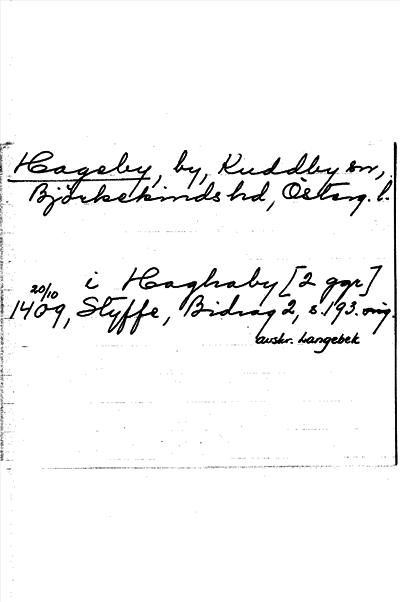 Hageby, by, Kuddby sn,
Björkekinds hd, Österg. l.
i Haghaby [2 ggr]
20/10
1409, Styffe, Bidrag 2, s. 193. orig.
avskr. Langebek